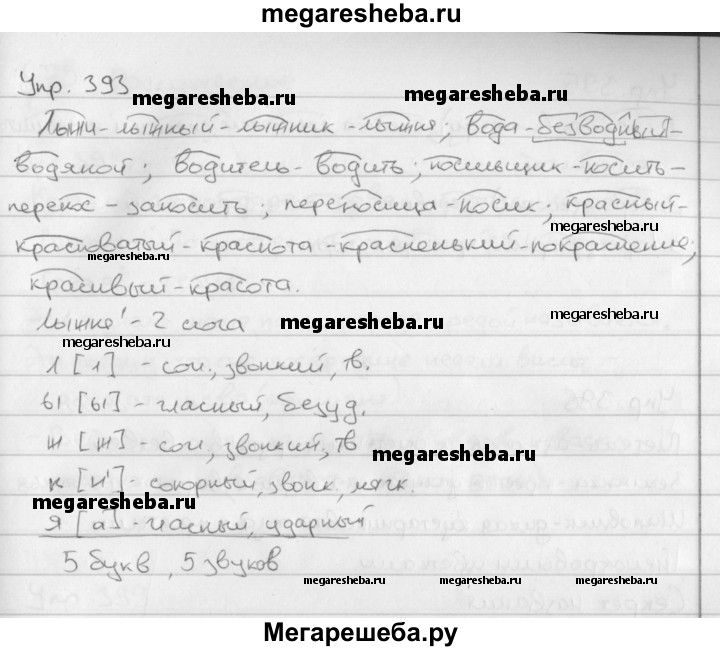 megaresheba.ru
Упр. 393
megaresheba.ru
megaresheba.ru
Лыжи-лыжный-лыжник-лыжня; вода-безводный-
водяной; водитель-водить; носильщик-носить-
перенос-заносить; переносица-носик; красный-
megaresheba.ru
красноватый-краснота-красненький-покраснение;
megaresheba.ru
megaresheba.ru
красивый-красота.
лыжня'-2 слога
megaresheba.ru
megaresheba.ru
megaresheba.ru
л [л] - сог., звонкий, тв.
ы [ы] - гласный, безуд.
ж [ж] - сог., звонкий, тв
megaresheba.ru
н [н'] - сонорный, звонк., мягк.
megaresheba.ru
я [а] - гласный, ударный
5 букв, 5 звуков
megaresheba.ru
megaresheba.ru
Мегарешеба.ру